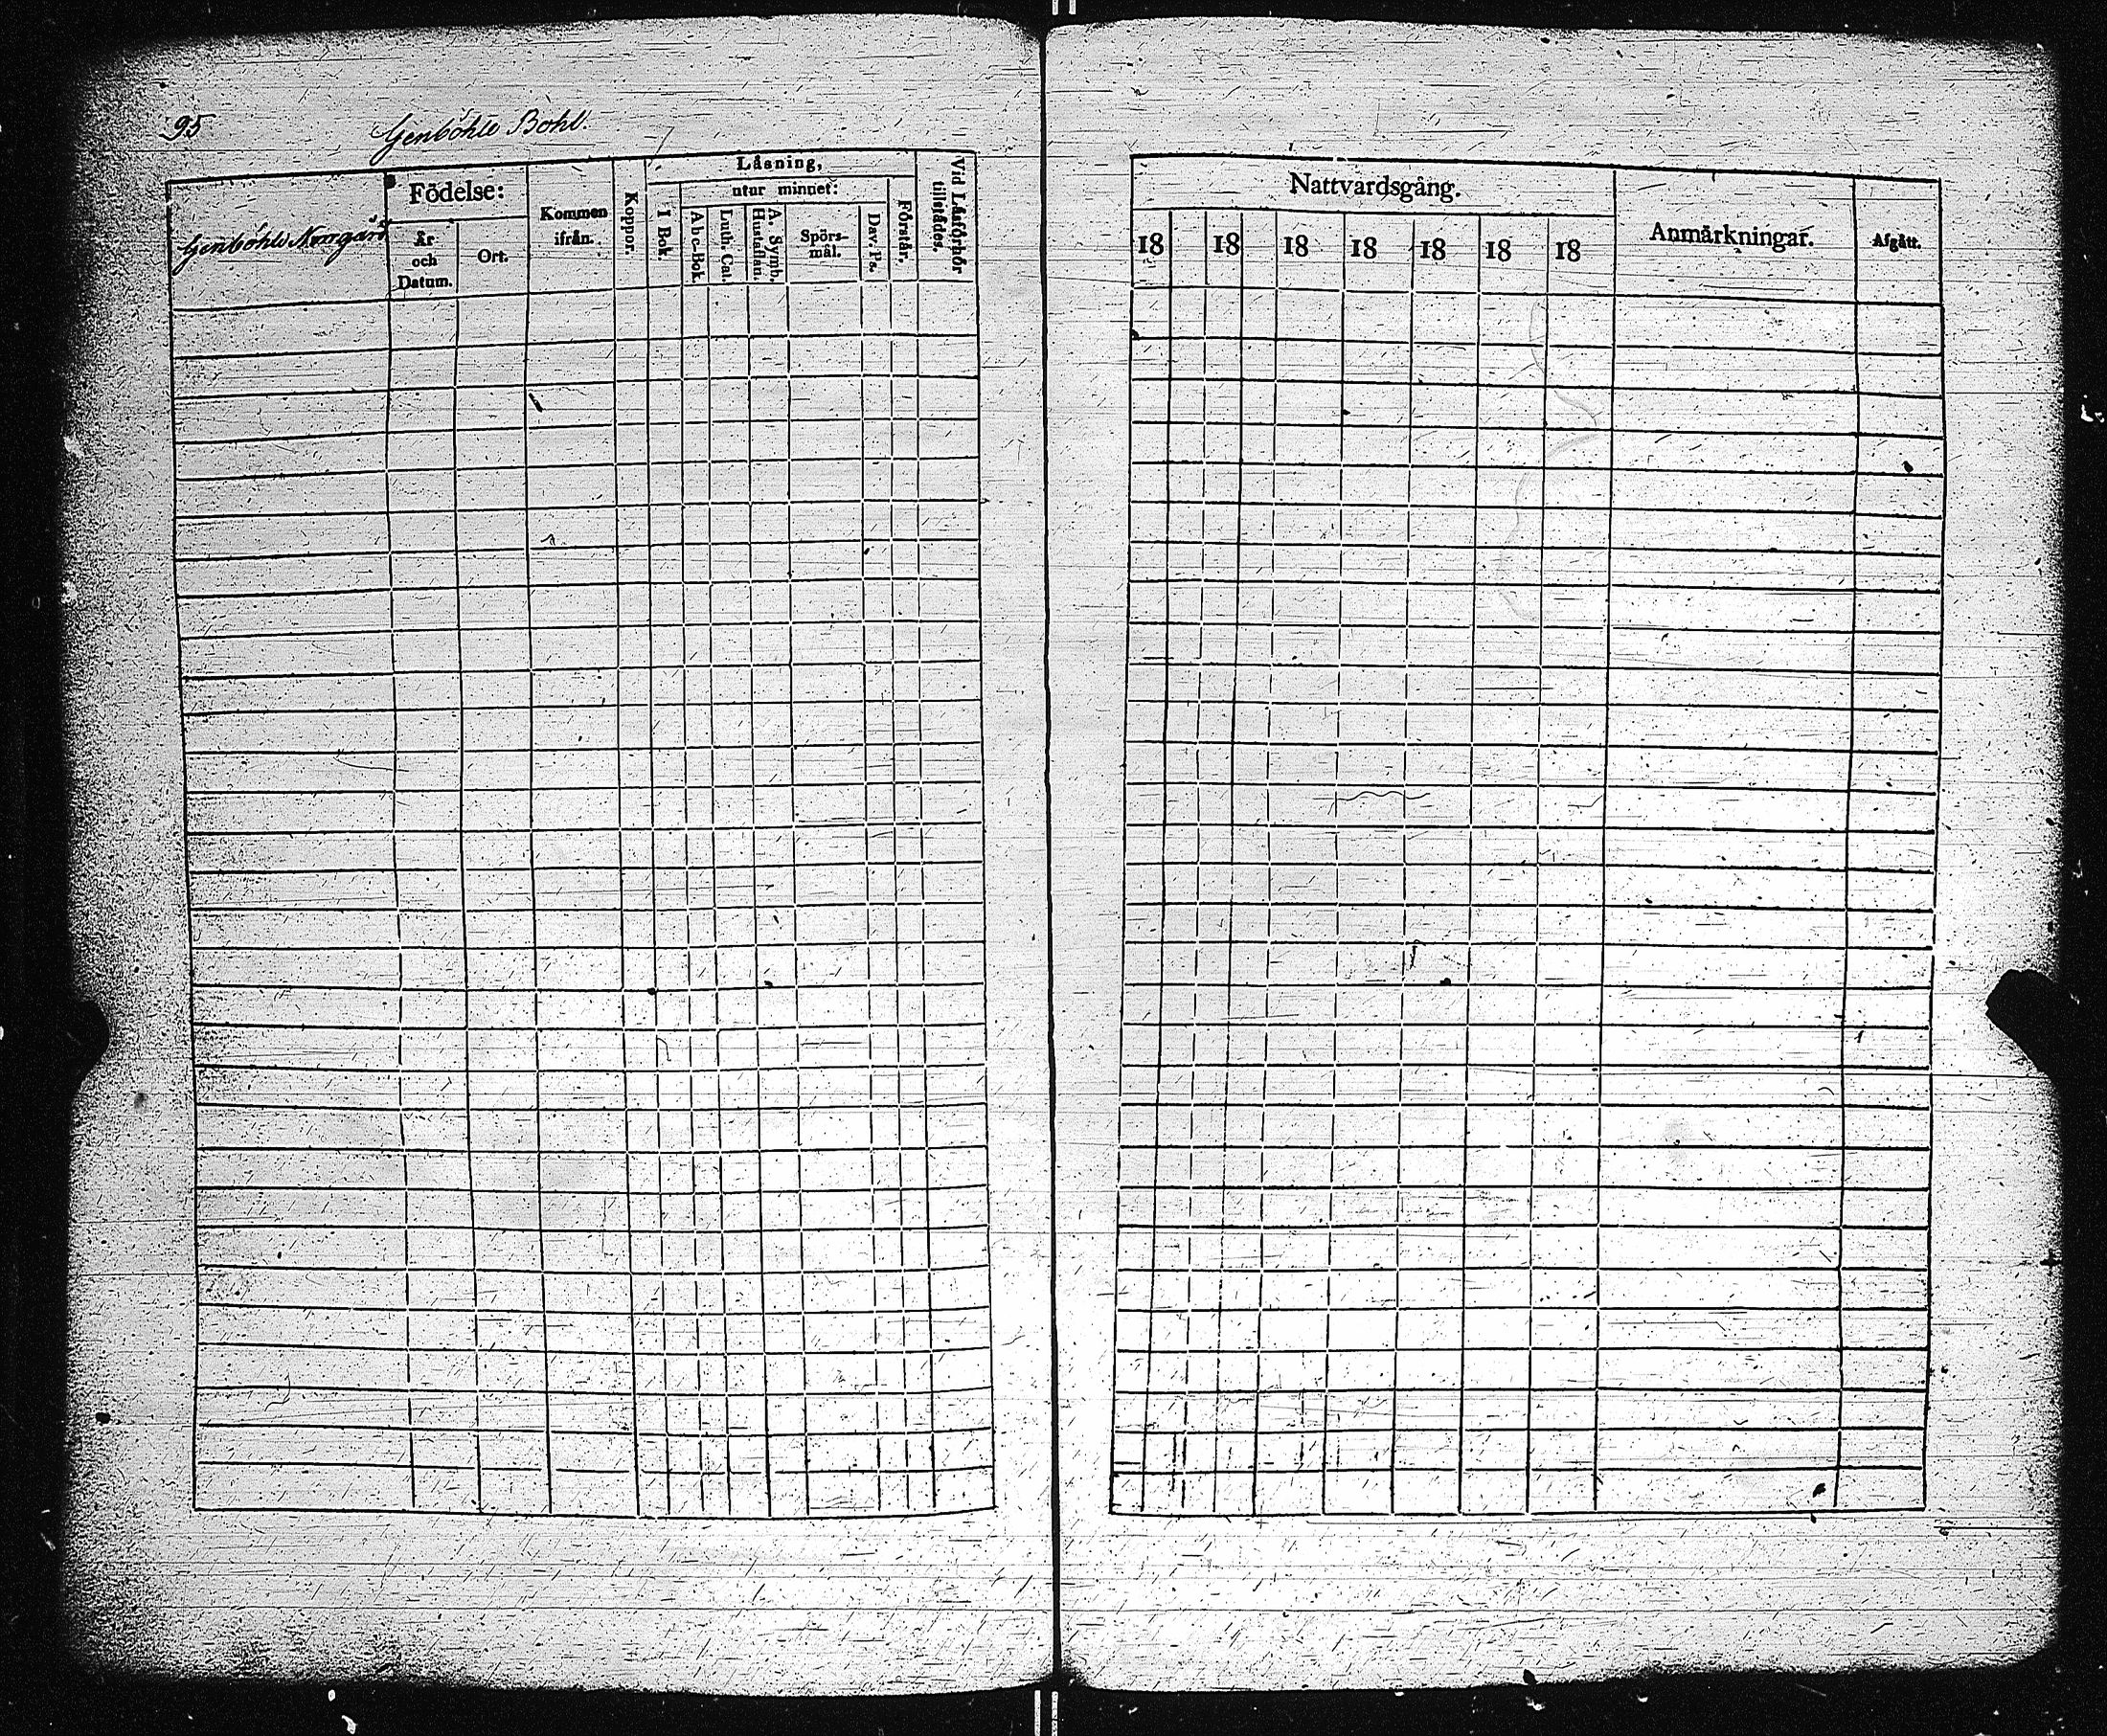 95
Genböhle Bohl.
Genböhle Norrgård
Födelse:
År
och
Datum.
Ort.
Kommen
ifrån.
Koppor.
Läsning,
I Bok.
utur minnet:
Abc-Bok.
Luth. Cat.
A. Symb.
Hustaflan.
Spörs-
mål.
Dav. Ps.
Förstår.
Vid Läsförhör
tillstådes.
Nattvardsgång.
18 18 18 18 18 18 18
Anmärkningar.
Afgått.